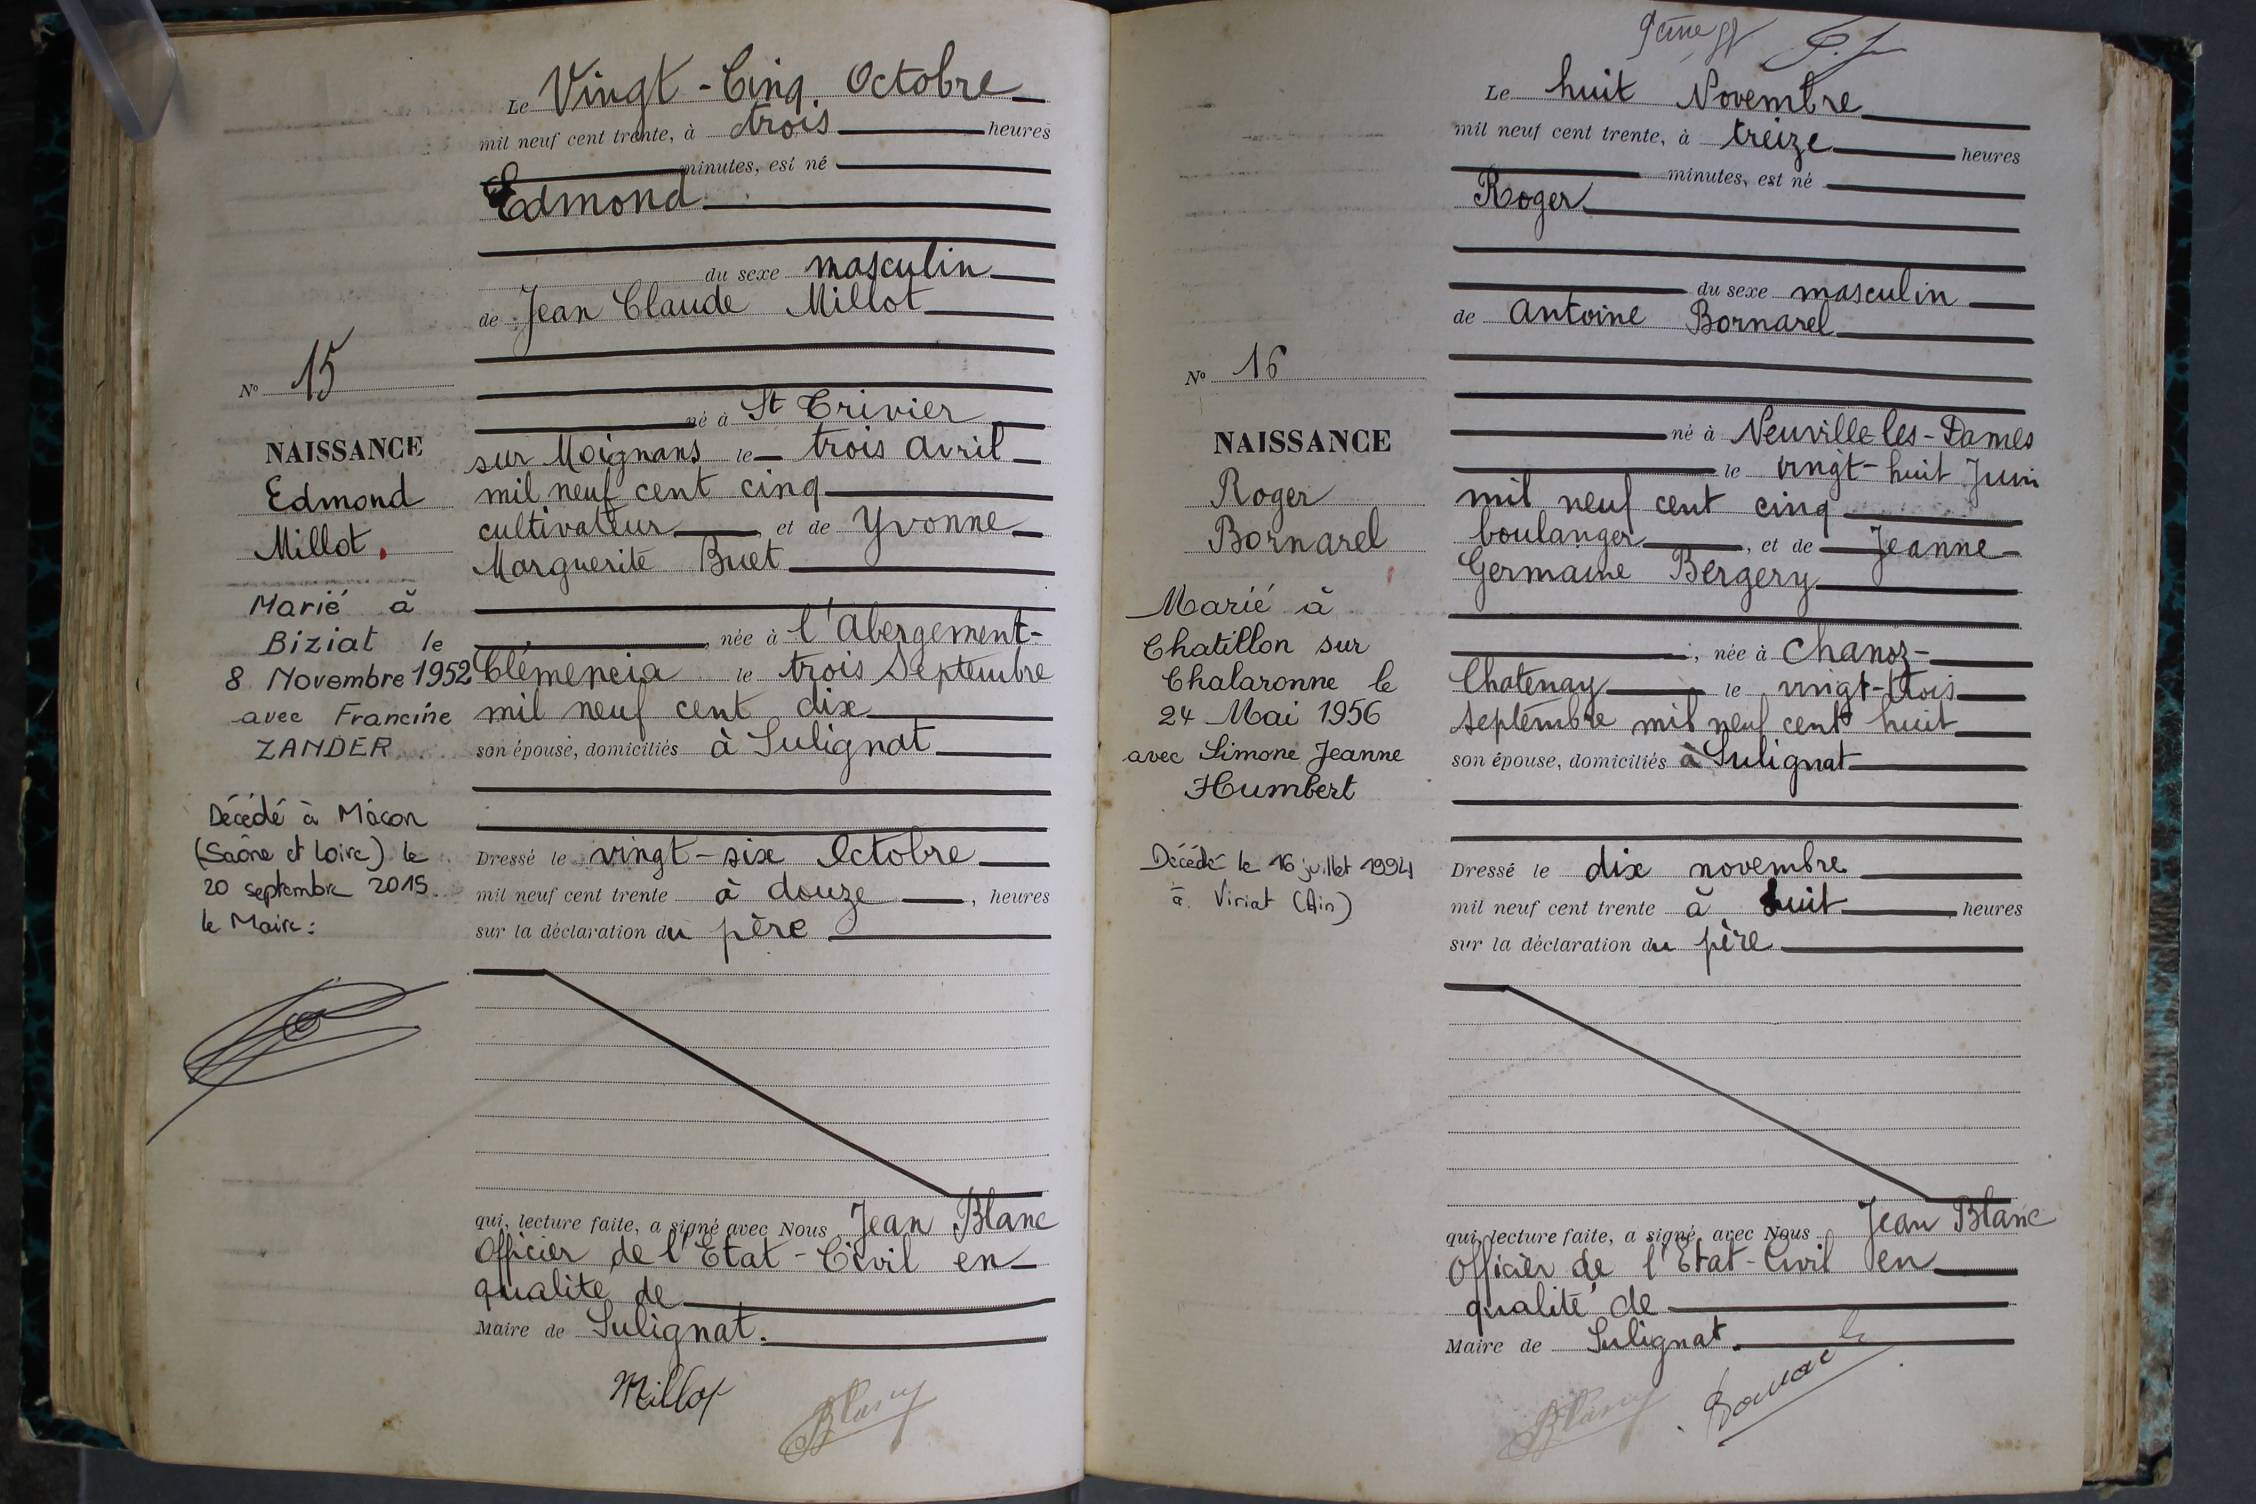 Le Vingt-Cinq Octobre
mil neuf cent trente, à trois heures
minutes, est né
Edmond
du sexe masculin
de Jean Claude Millot
né à St Trivier
sur Moignans le trois Avril
mil neuf cent cinq
cultivateur, et de Yvonne
Marguerite Buet
, née à l'Abergement-
Clémencia le trois Septembre
mil neuf cent dix
son épouse, domiciliés à Sulignat
Dressé le vingt-six Octobre
mil neuf cent trente à douze, heures
sur la déclaration du père
qui, lecture faite, a signé avec Nous Jean Blanc
Officier de l'Etat-Civil en
qualité de
Maire de Sulignat.
Millot
Blanc
No 15
NAISSANCE
Edmond
Millot.
Marié à
Biziat le
8 Novembre 1952
avec Francine
ZANDER
Décédé à Mâcon
(Saône et Loire) le
20 septembre 2015
le Maire:
Le huit Novembre
mil neuf cent trente, à treize heures
minutes, est né
Roger
du sexe masculin
de Antoine Bornarel
né à Neuville-les-Dames
le vingt-huit Juin
mil neuf cent cinq
boulanger, et de Jeanne
Germaine Bergery
, née à Chanoz-
Chatenay le vingt-trois
septembre mil neuf cent huit
son épouse, domiciliés à Sulignat
Dressé le dix novembre
mil neuf cent trente à huit heures
sur la déclaration du père
qui, lecture faite, a signé, avec Nous Jean Blanc
Officier de l'Etat-Civil en
qualité de
Maire de Sulignat.
Blanc
No 16
NAISSANCE
Roger
Bornarel
Marié à
Chatillon sur
Chalaronne le
24 Mai 1956
avec Simone Jeanne
Humbert
Décédé le 16 juillet 1994
à Viriat (Ain)